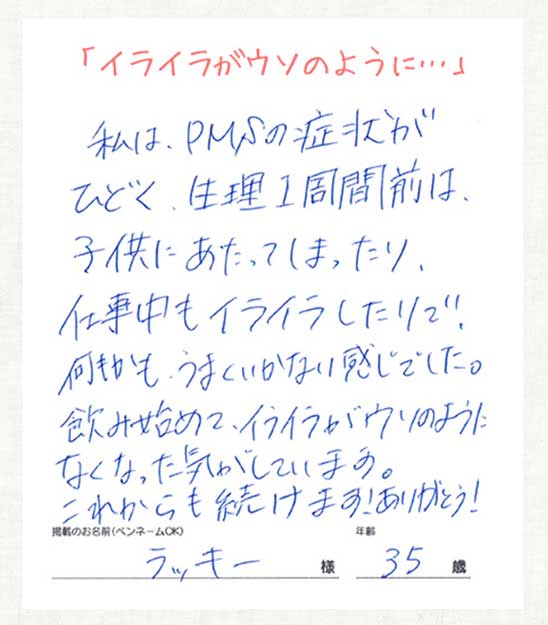 「イライラがウソのように…」
私は、PMSの症状が
ひどく、生理1周間前は、
子供にあたってしまったり、
仕事中もイライラしたりで、
何もかも、うまくいかない感じでした。
飲み始めて、イライラがウソのように
なくなった気がしています。
これからも続けます！ありがとう！
掲載のお名前(ペンネームOK) 年齢
ラッキー 様 35 歳